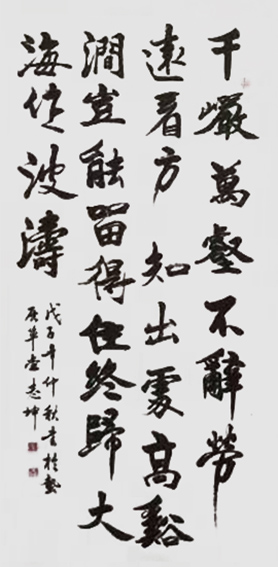 千巖萬壑不辭勞
遠看方知出處高谿
澗豈能留得住終歸大
海作波濤
戊子年仲秋書於藝
草堂志坤